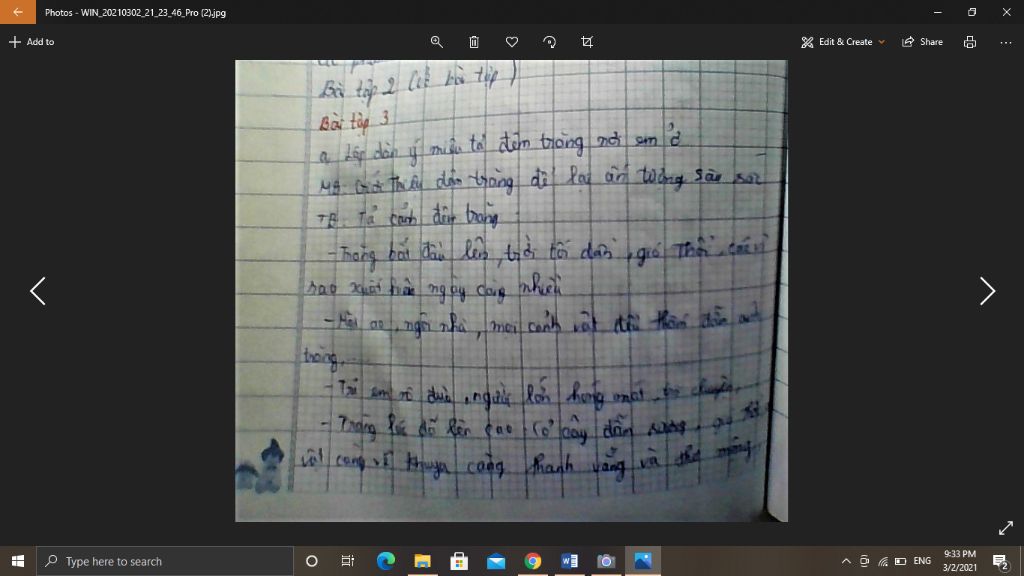 Photos - WIN_20210302_21_23_46_Pro (2).jpg
Add to
Edit & Create
Share
Bài tập 2 (Vở bài tập)
Bài tập 3
a, Lập dàn ý miêu tả đêm trăng nơi em ở
MB: Giới thiệu đêm trăng để lại ấn tượng sâu sắc
TB: Tả cảnh đêm trăng
- Trăng bắt đầu lên, trời tối dần, gió thổi, các vì
sao xuất hiện ngày càng nhiều
- ao, ngôi nhà, mọi cảnh vật đều thấm đẫm ánh
trăng.
- Trẻ em nô đùa, người lớn hóng mát, trò chuyện.
- Trăng lúc đó lên cao, cỏ cây đẫm sương,
vật càng về khuya càng thanh vắng và thơ mộng
Type here to search
ENG
9:33 PM
3/2/2021
2